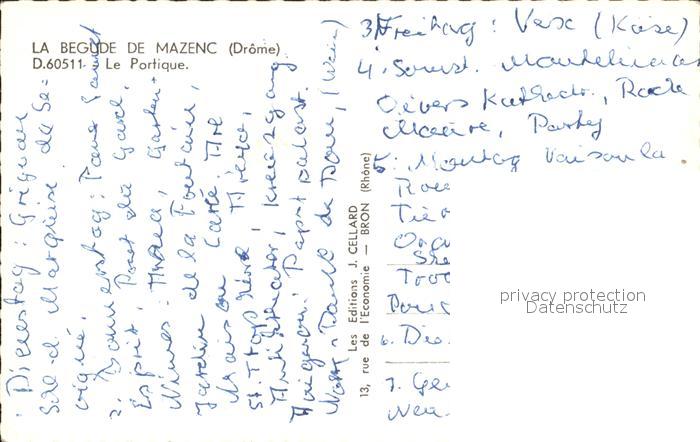 LA BEGUDE DE MAZENC (Drôme)
D.60511 - Le Portique.
Dienstag: Grignan
Schl. d. Marquise de Sé-
vigné.
2. Donnerstag: Pont Saint
Esprit, Pont du Gard.
Nîmes: Arena, Garten
Jardin de la Fontaine,
Maison Carré. Arle
St. Trophime, Arena,
Amphitheater, Kreuzgang
Avignon: Papstpalast.
Notre-Dame de Dom, (Wein)
Les Editions J. CELLARD
13, rue de l'Economie — BRON (Rhône)
3. Freitag: Vesc (Käse)
4. Sonnt. Montelimar
Kathedr., Roche
Maure, Party
5. Montag Vaison la
Rom
Tier
Ora
Sta
Troc
Pous
6. Die
7. Ge
Neu
privacy protection
Datenschutz